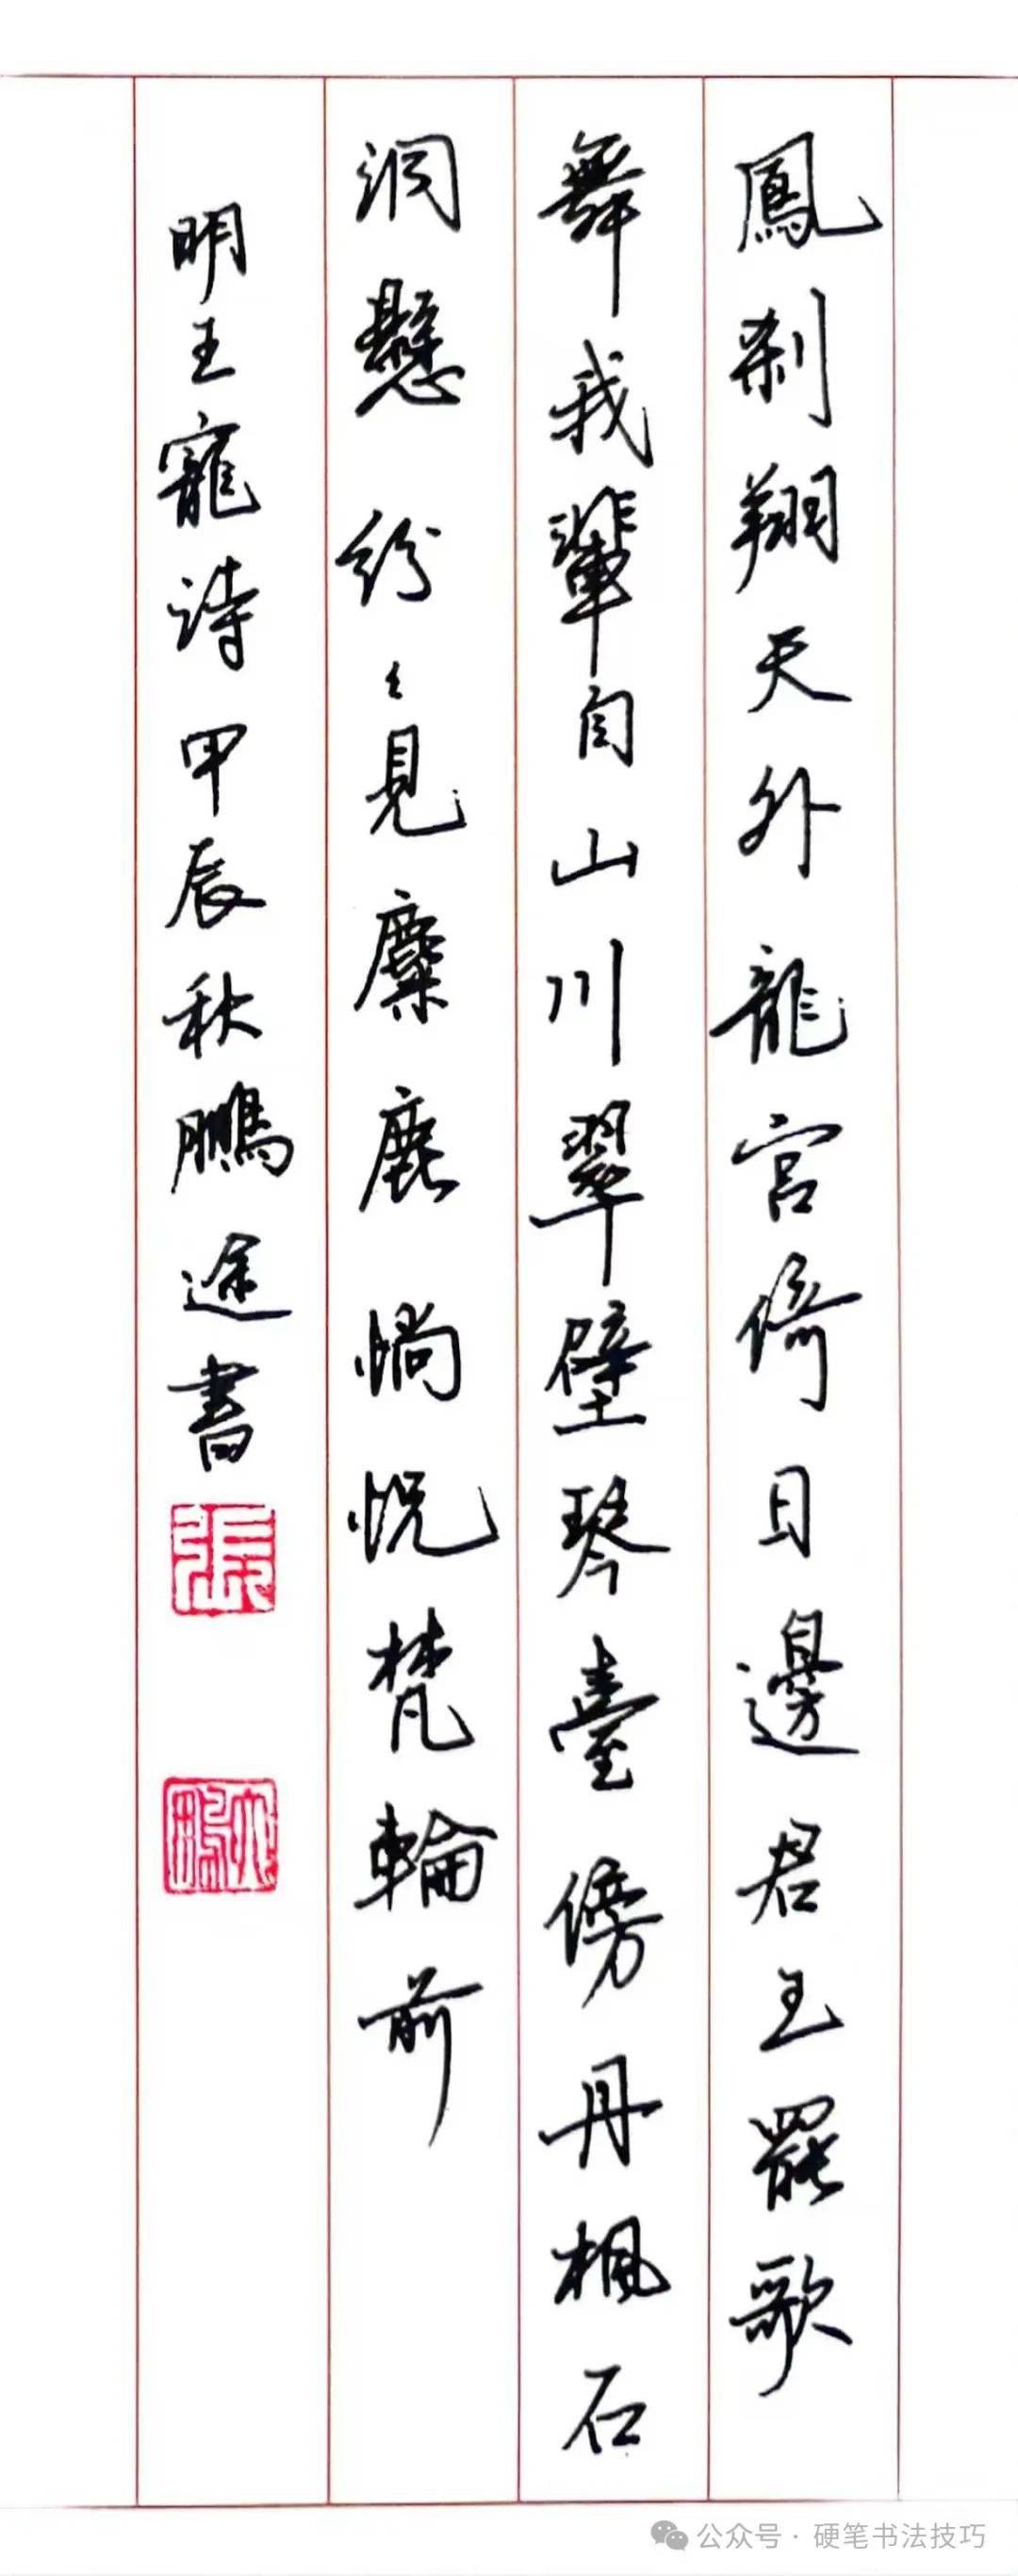 鳳剎翔天外龍宮倚日邊君王罷歌
舞我輩自山川翠壁琴臺傍丹楓石
洞懸紛々見麋鹿惝怳梵輪前
明王寵詩甲辰秋鵬途書
張
公众号·硬笔书法技巧